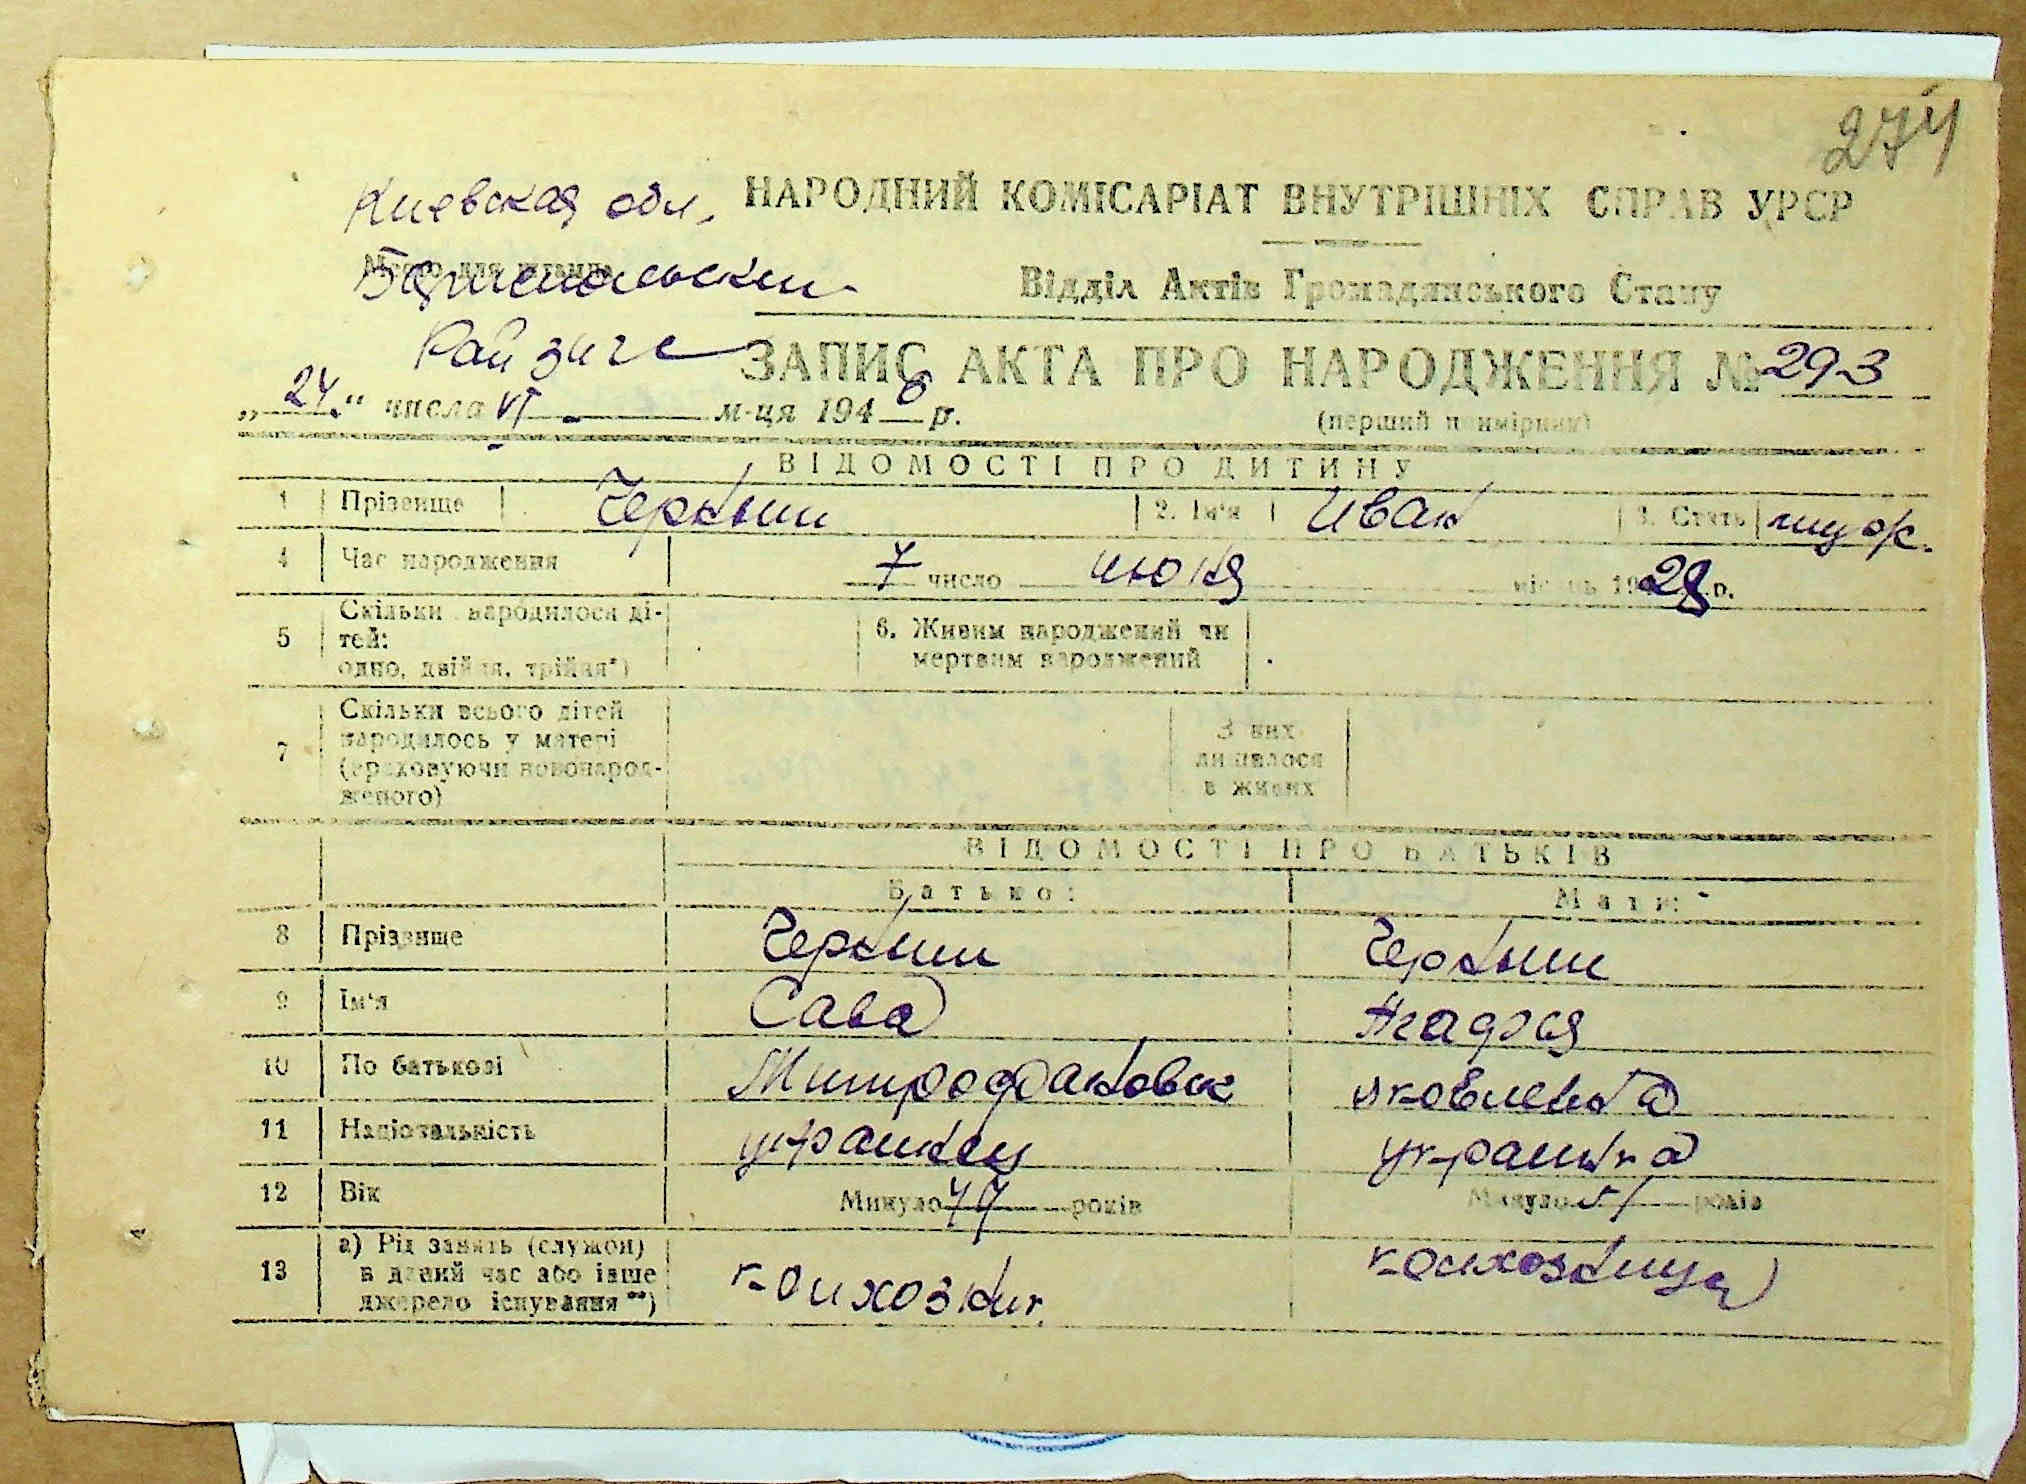 274
Киевская обл.
НАРОДНИЙ КОМІСАРІАТ ВНУТРІШНІХ СПРАВ УРСР
Бориспольский
Відділ Актів Громадянського Стану
Рай загс
ЗАПИС АКТА ПРО НАРОДЖЕННЯ № 293
„24.“ числа VI м-ця 194 р.
(перший примірник)
ВІДОМОСТІ ПРО ДИТИНУ
1 Прізвище Черныш 2. Ім'я Иван 3. Стать муж.
4 Час народження 7 число июня місяць 1928 р.
5 Скільки народилося ді-
тей:
одно, двійня, трійня*)
6. Живим народжений чи
мертвим народжений
7 Скільки всього дітей
народилось у матері
(враховуючи новонарод-
женого)
З них
лишилося
в живих
ВІДОМОСТІ ПРО БАТЬКІВ
Батько: Мати:
8 Прізвище Черныш Черныш
9 Ім'я Сава Агафия
10 По батькові Митрофанович Яковлевна
11 Національність украинец украинка
12 Вік Минуло років Минуло 51 років
13 а) Рід занять (служби)
в даний час або інше
джерело існування **)
колхозник колхозница